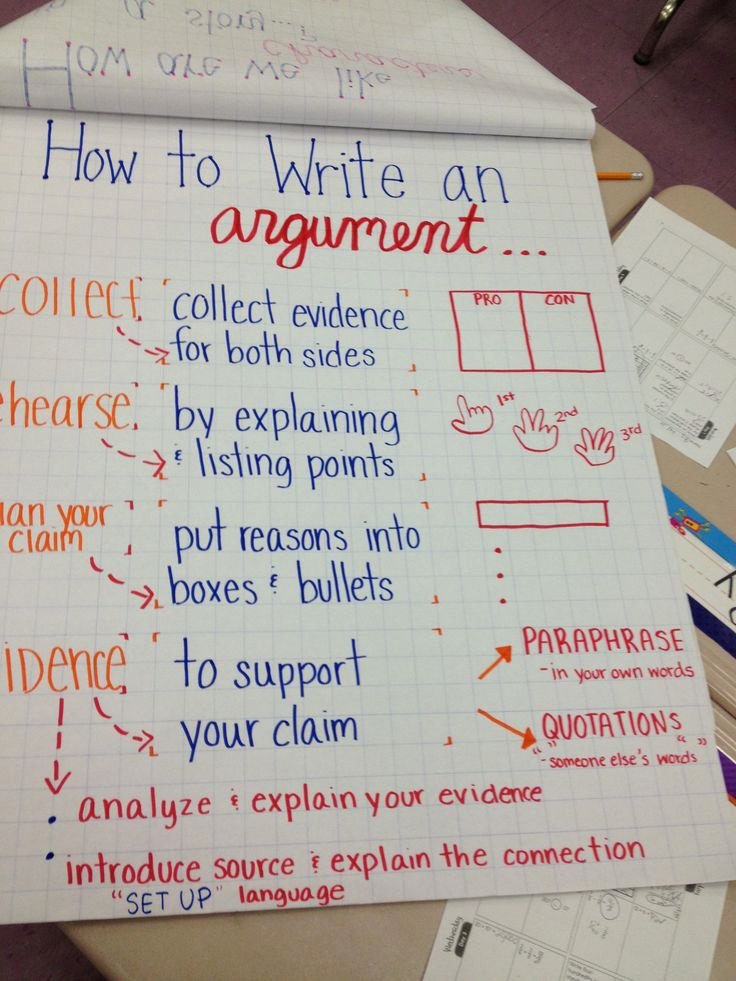 a story...?
characters
How are we like
How to Write an
argument...
collect
collect evidence
for both sides
PRO CON
ehearse
by explaining
& listing points
1st 2nd 3rd
lan your
claim
put reasons into
boxes & bullets
idence
to support
your claim
PARAPHRASE
-in your own words
QUOTATIONS
" " -someone else's words
analyze & explain your evidence
introduce source & explain the connection
"SET UP" language
Wednesday
Day 3